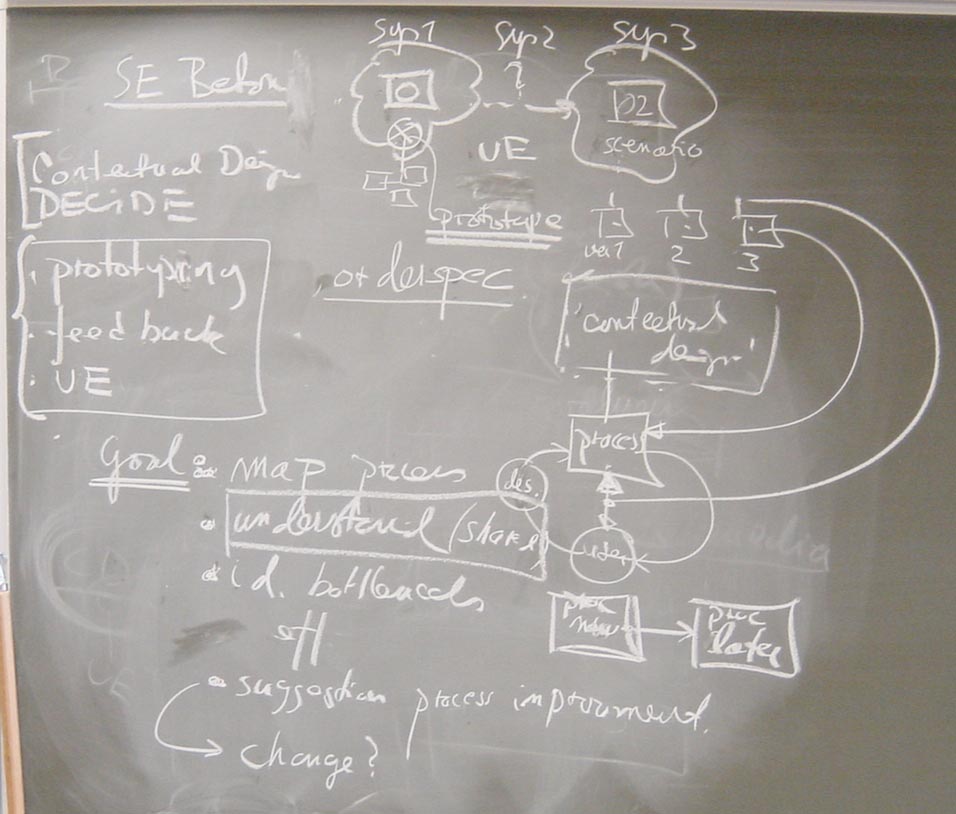 Syp1 Syp2 Syp3
SE Beton
?
D2
scenario
UE
Contextual Design
DECIDE
prototype
ver1 2 3
• prototyping
• feedback
• UE
or de spec
contextual
design
process
des.
user
Goal
• map process
• understand/share
• id. bottlenecks
eff
proc
now
proc
later
• suggestion process improvement.
change?